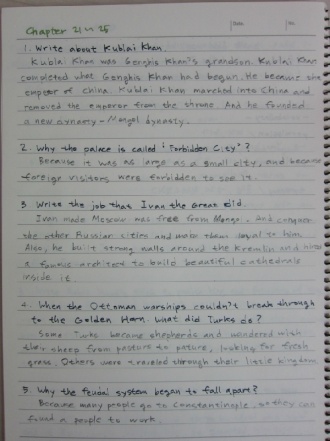 Chapter 21 ~ 25
Date.
No.
1. Write about Kublai Khan.
Kublai Khan was Genghis Khan's grandson. Kublai Khan
completed what Genghis Khan had begun. He because the
of China. Kublai Khan marched into China and
removed the emperor from the throne. And he founded
a new dynasty - Mongol dynasty.
2. Why the palace is called "Forbidden City"?
Because it was as large as a small city, and because
foreign visitors were forbidden to see it.
3 Write the job that Ivan the Great did.
Ivan made Moscow was free from. And conquer
the other Russian cities and make them loyal to him.
Also, he built strong walls around the Kremlin and
a architect to build beautiful cathedrals
inside it.
4. When the Ottoman warships couldn't break through
to the Golden Horn. What did Turks do?
Some Turks became shepherds and wandered with
sheep from pasture to, looking for fresh
grass. Others were traveled through their little kingdom
5. Why the feudal system began to fall apart?
Because many people go to Constantinople, so they can
found a people to work.